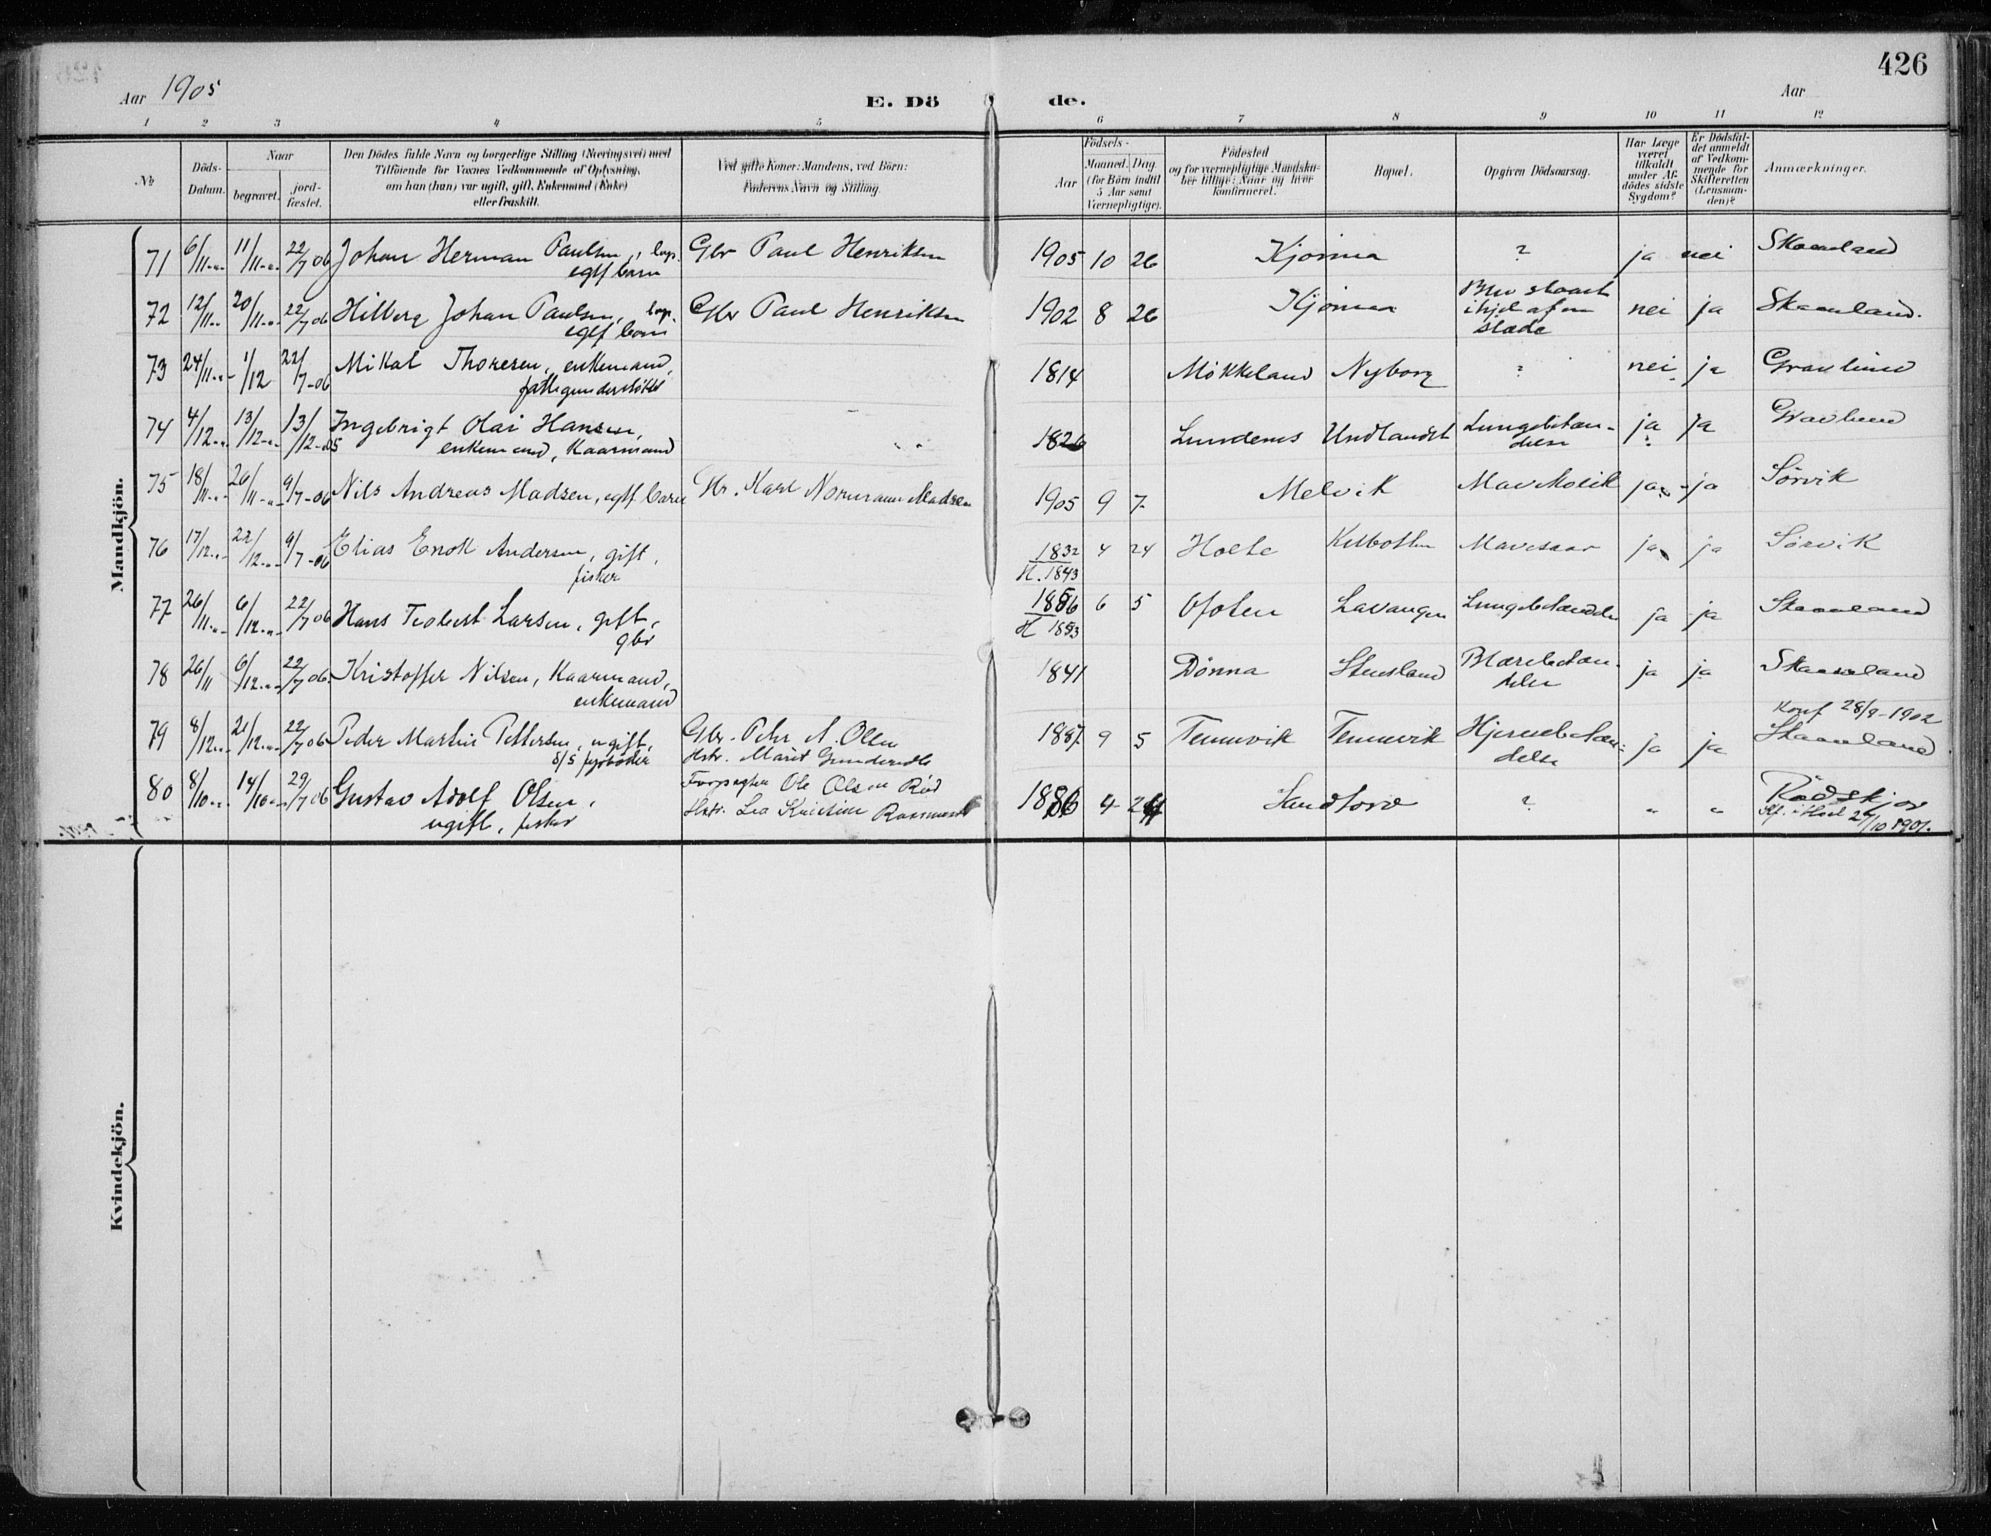 426
Aar 1905
E. Dö de.
Aar
1 2 3 4 5 6 7 8 9 10 11 12
№
Döds-Datum.
Naar
begravet.
jord-fæstet.
Den Dödes fulde Navn og borgerlige Stilling (Næringsvei) med
Tilföiende for Voxnes Vedkommende af Oplysning,
om han (hun) var ugift, gift, Enkemand (Enke)
eller fraskilt.
Ved gifte Koner: Mandens, ved Börn:
Faderens Navn og Stilling.
Födsels-
Aar
Maaned. Dag.
(for Börn indtil
5 Aar samt
Værnepligtige).
Födested
og for værnepligtige Mandska-
ber tillige: Naar og hvor
konfirmeret.
Bopæl.
Opgiven Dödsaarsag.
Har Læge
været
tilkaldt
under Af-
dödes sidste
Sygdom?
Er Dödsfal-
det anmeldt
af Vedkom-
mende for
Skifteretten
(Lensman-
den)?
Anmærkninger.
Mandkjön.
71 6/11 11/11 22/7 06 Johan Herman Paulsen, egtf barn Gbr Paul Henriksen 1905 10 26 Kjönna ? ja nei Skaanland
72 12/11 20/11 22/7 06 Hilberg Johan Paulsen, egtf barn Gbr Paul Henriksen 1902 8 26 Kjönna Blev slaaet ihjel af en slæde nei ja Skaanland.
73 24/11 1/12 22/7-06 Mikal Thoresen, enkemand, fattigunderstöttet 1814 Møkkeland Nyborg ? nei ja Gravlund
74 4/12 13/12 13/12-05 Ingebrigt Olai Hansen, enkemand, Kaarmand 1826 Lundenes Undlandet Lungebetændelse ja ja Gravlund
75 18/11 26/11 9/7-06 Nils Andreas Madsen, egtf. barn Karl Normann Madsen 1905 9 7 Melvik Mavekolik ja ja Sörvik
76 17/12 22/12 9/7-06 Elias Enok Andersen, gift, fisker 1832 H. 1843 4 24 Holte Kilbotten Mavesaar ja ja Sörvik
77 26/11 6/12 22/7 06 Hans Teobert Larsen, gift, gbr 1886 6 5 Ofoten Lavangen Lungebetændelse ja ja Skaanland
78 26/11 6/12 22/7 06 Kristoffer Nilsen, Kaarmand, enkemand 1841 Dönna Stensland Blærebetændelse ja ja Skaanland
79 8/12 21/12 22/7 06 Peder Martin Pettersen, ugift, Gbr. Peder A. Olsen Hstr. Marit 1887 9 5 Tennevik Tennevik Hjernebetændelse ja ja Konf 28/9-1902 Skaanland
80 8/10 14/10 29/7 06 Gustav Adolf Olsen, ugift, fisker Ole Olsen Hstr. Lea Kristine 1886 4 24 Sandtorv ? " " Rödskjær 27/10 1901.
Kvindekjön.